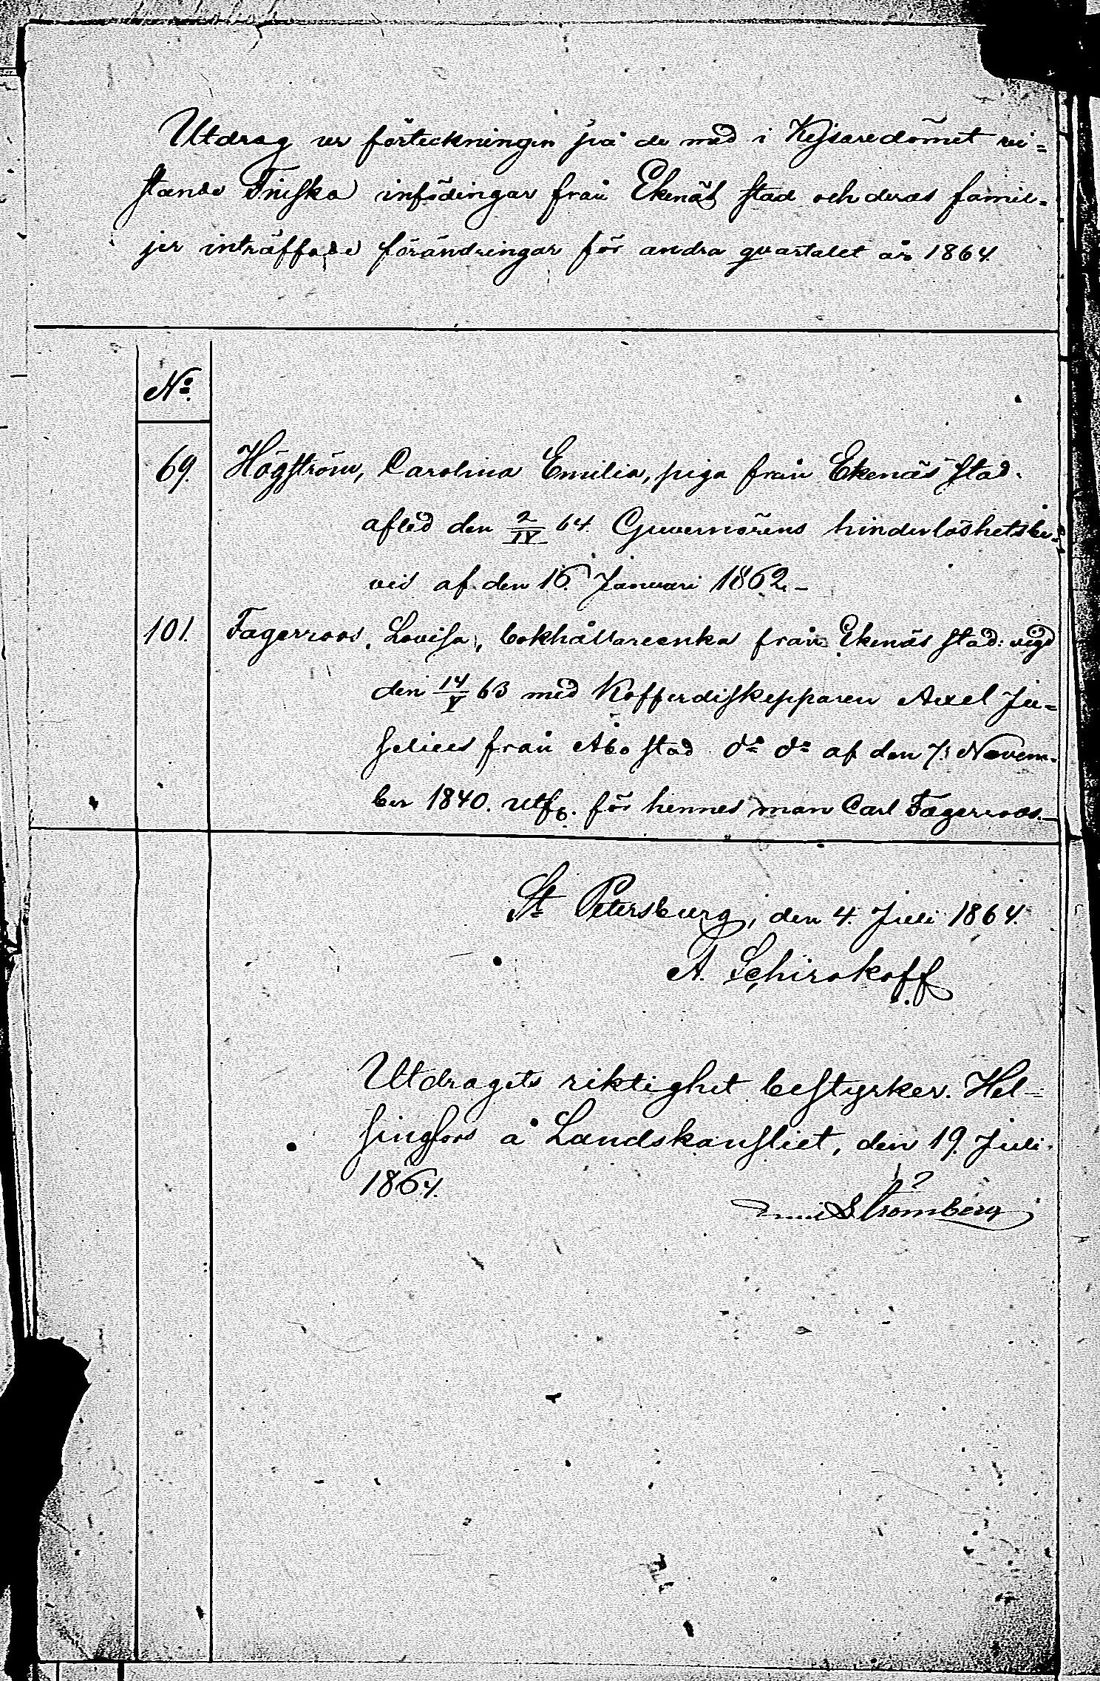 Utdrag ur förteckningen på de med i Kejsaredömet vi-
stande Finska infödingar från Ekenäs stad och deras famil-
jer inträffade förändringar för andra qvartalet år 1864.
No.
69. Högström, Carolina Emilia, piga från Ekenäs stad.
afled den 2/IV 64 Guvernörens hinderlöshetsbe-
vis af den 16. Januari 1862.-
101. Fagerroos, Lovisa, bokhållareenka från Ekenäs stad: vigd
den 14/V 63 med Kofferdiskepparen Axel Ju-
selius från Åbo stad do do af den 7. Novem-
ber 1840. utf. för hennes man Carl Fagerroos.-
St. Petersburg, den 4. Juli 1864.
A. Schirokoff
Utdragets riktighet bestyrker. Hel-
singfors å Landskansliet, den 19. Juli
1864.
Strömberg